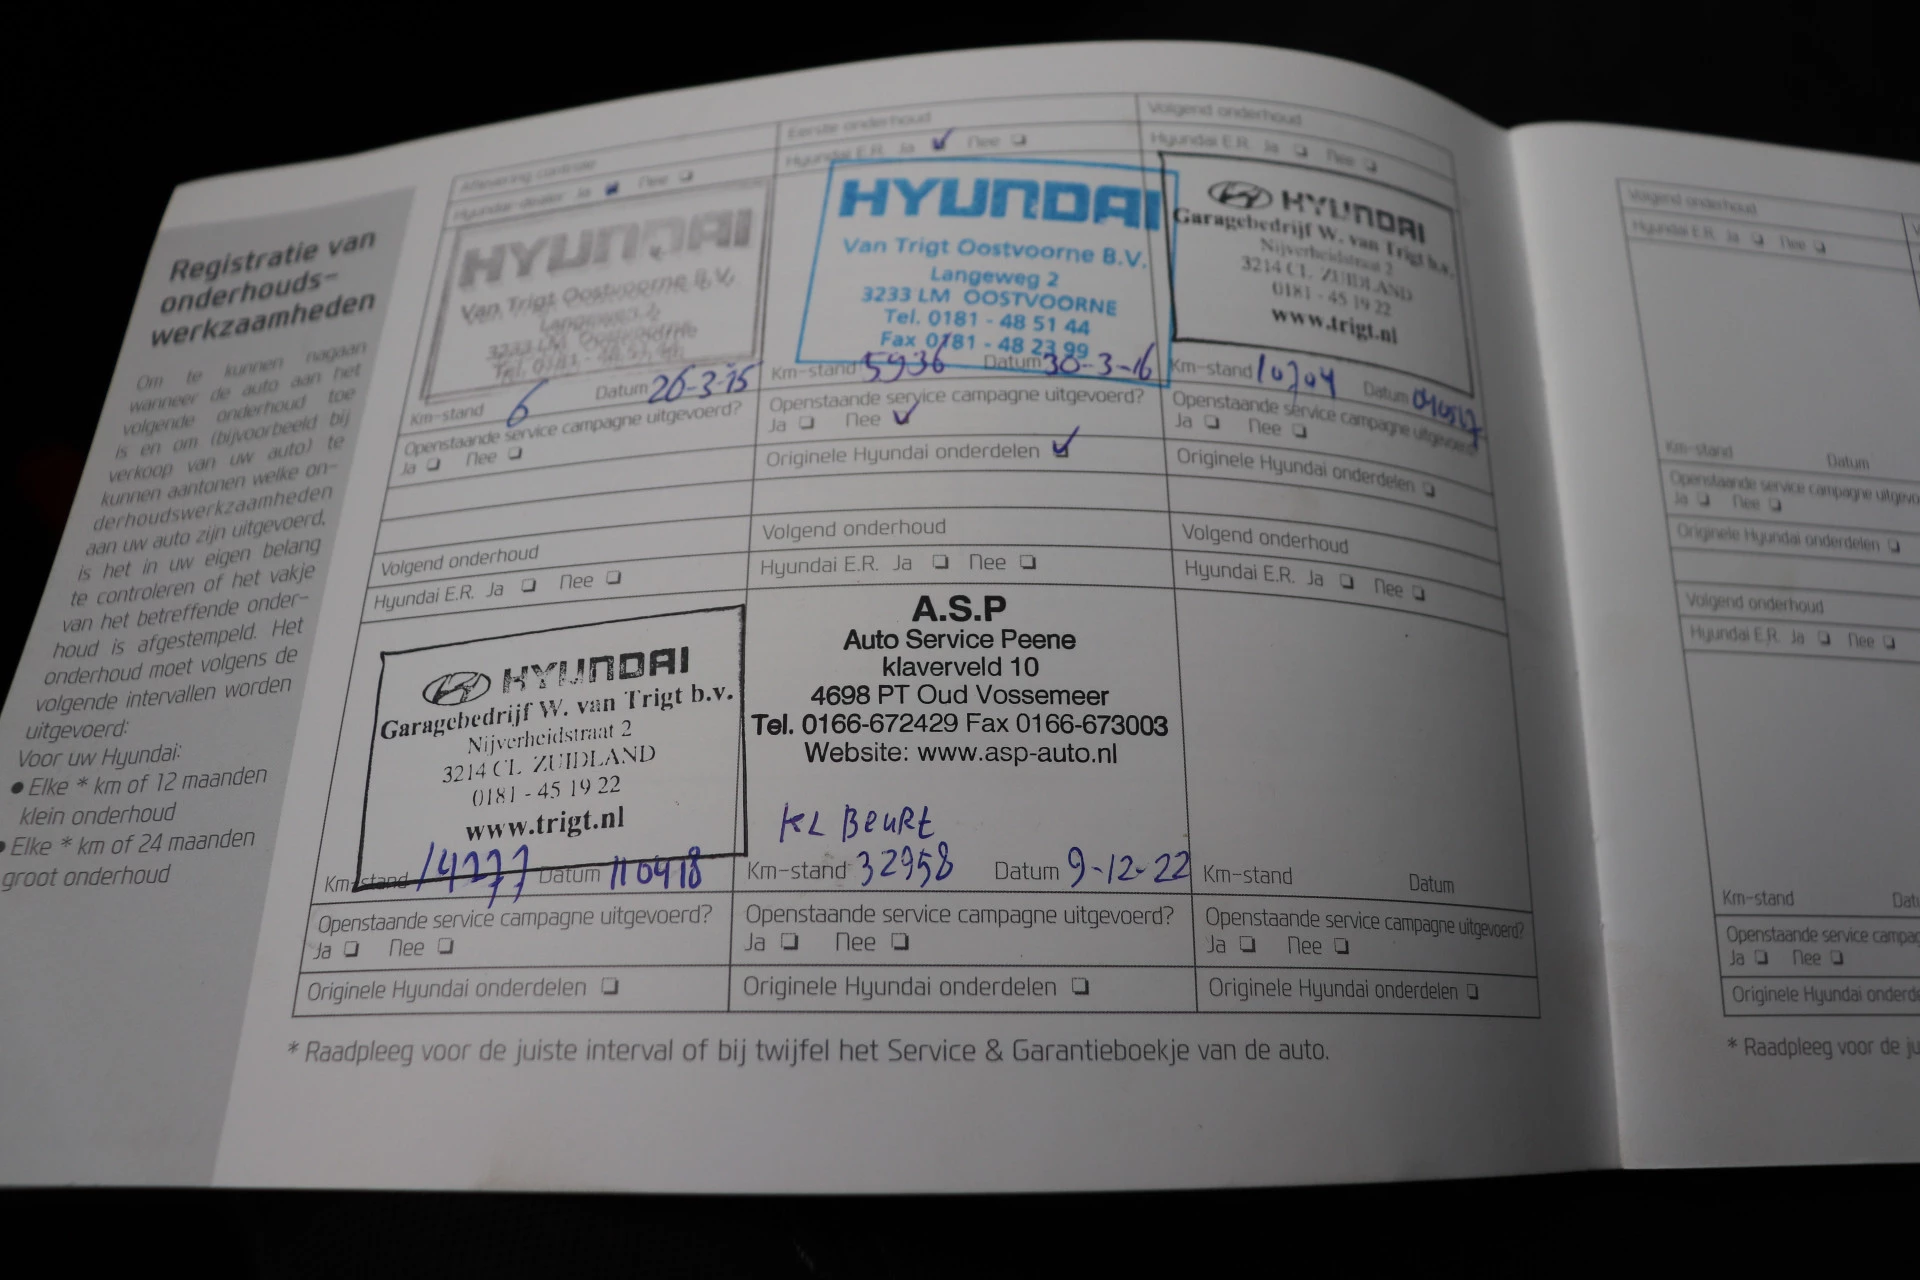 Registratie van
onderhouds-
werkzaamheden
Om te kunnen nagaan
wanneer de auto aan het
volgende onderhoud toe
is en om (bijvoorbeeld bij
verkoop van uw auto) te
kunnen aantonen welke on-
derhoudswerkzaamheden
aan uw auto zijn uitgevoerd,
is het in uw eigen belang
te controleren of het vakje
van het betreffende onder-
houd is afgestempeld. Het
onderhoud moet volgens de
volgende intervallen worden
uitgevoerd:
Voor uw Hyundai:
• Elke * km of 12 maanden
klein onderhoud
• Elke * km of 24 maanden
groot onderhoud
Aflevering controle
Hyundai-dealer Ja Nee
HYUNDAI
Van Trigt Oostvoorne B.V.
Langeweg 2
3233 LM Oostvoorne
Tel. 0181 - 48 51 44
Km-stand 6 Datum 26-3-15
Openstaande service campagne uitgevoerd?
Ja Nee
Eerste onderhoud
Hyundai E.R. Ja Nee
HYUNDAI
Van Trigt Oostvoorne B.V.
Langeweg 2
3233 LM OOSTVOORNE
Tel. 0181 - 48 51 44
Fax 0181 - 48 23 99
Km-stand 5936 Datum 30-3-16
Openstaande service campagne uitgevoerd?
Ja Nee
Originele Hyundai onderdelen
Volgend onderhoud
Hyundai E.R. Ja Nee
HYUNDAI
Garagebedrijf W. van Trigt b.v.
Nijverheidstraat 2
3214 CL ZUIDLAND
0181 - 45 19 22
www.trigt.nl
Km-stand 10704 Datum
Openstaande service campagne uitgevoerd?
Ja Nee
Originele Hyundai onderdelen
Volgend onderhoud
Hyundai E.R. Ja Nee
HYUNDAI
Garagebedrijf W. van Trigt b.v.
Nijverheidstraat 2
3214 CL ZUIDLAND
0181 - 45 19 22
www.trigt.nl
Km-stand 14277 Datum 110418
Openstaande service campagne uitgevoerd?
Ja Nee
Originele Hyundai onderdelen
Volgend onderhoud
Hyundai E.R. Ja Nee
A.S.P
Auto Service Peene
klaverveld 10
4698 PT Oud Vossemeer
Tel. 0166-672429 Fax 0166-673003
Website: www.asp-auto.nl
KL BEURT
Km-stand 32958 Datum 9-12-22
Openstaande service campagne uitgevoerd?
Ja Nee
Originele Hyundai onderdelen
Volgend onderhoud
Hyundai E.R. Ja Nee
Km-stand Datum
Openstaande service campagne uitgevoerd?
Ja Nee
Originele Hyundai onderdelen
* Raadpleeg voor de juiste interval of bij twijfel het Service & Garantieboekje van de auto.
Volgend onderhoud
Hyundai E.R. Ja Nee
Km-stand Datum
Openstaande service campagne uitgevo
Ja Nee
Originele Hyundai onderdelen
Volgend onderhoud
Hyundai E.R. Ja Nee
Km-stand Dat
Openstaande service campag
Ja Nee
Originele Hyundai onderde
* Raadpleeg voor de ju